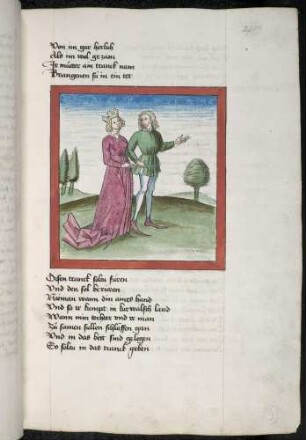 Von im gar herlich
Als im wol ge zam
Ir mûter am tranck nam
Brangenen sü in ein tet
Disen tranck soltu füren
Und den sol berüren
Nieman wann din aines hand
Und so ir kompt in kurwalsch land
Wann min tochter und ir man
Zů samen sollen schlaffen gan
Und in das bett sind gelegen
So soltu in das tranck geben